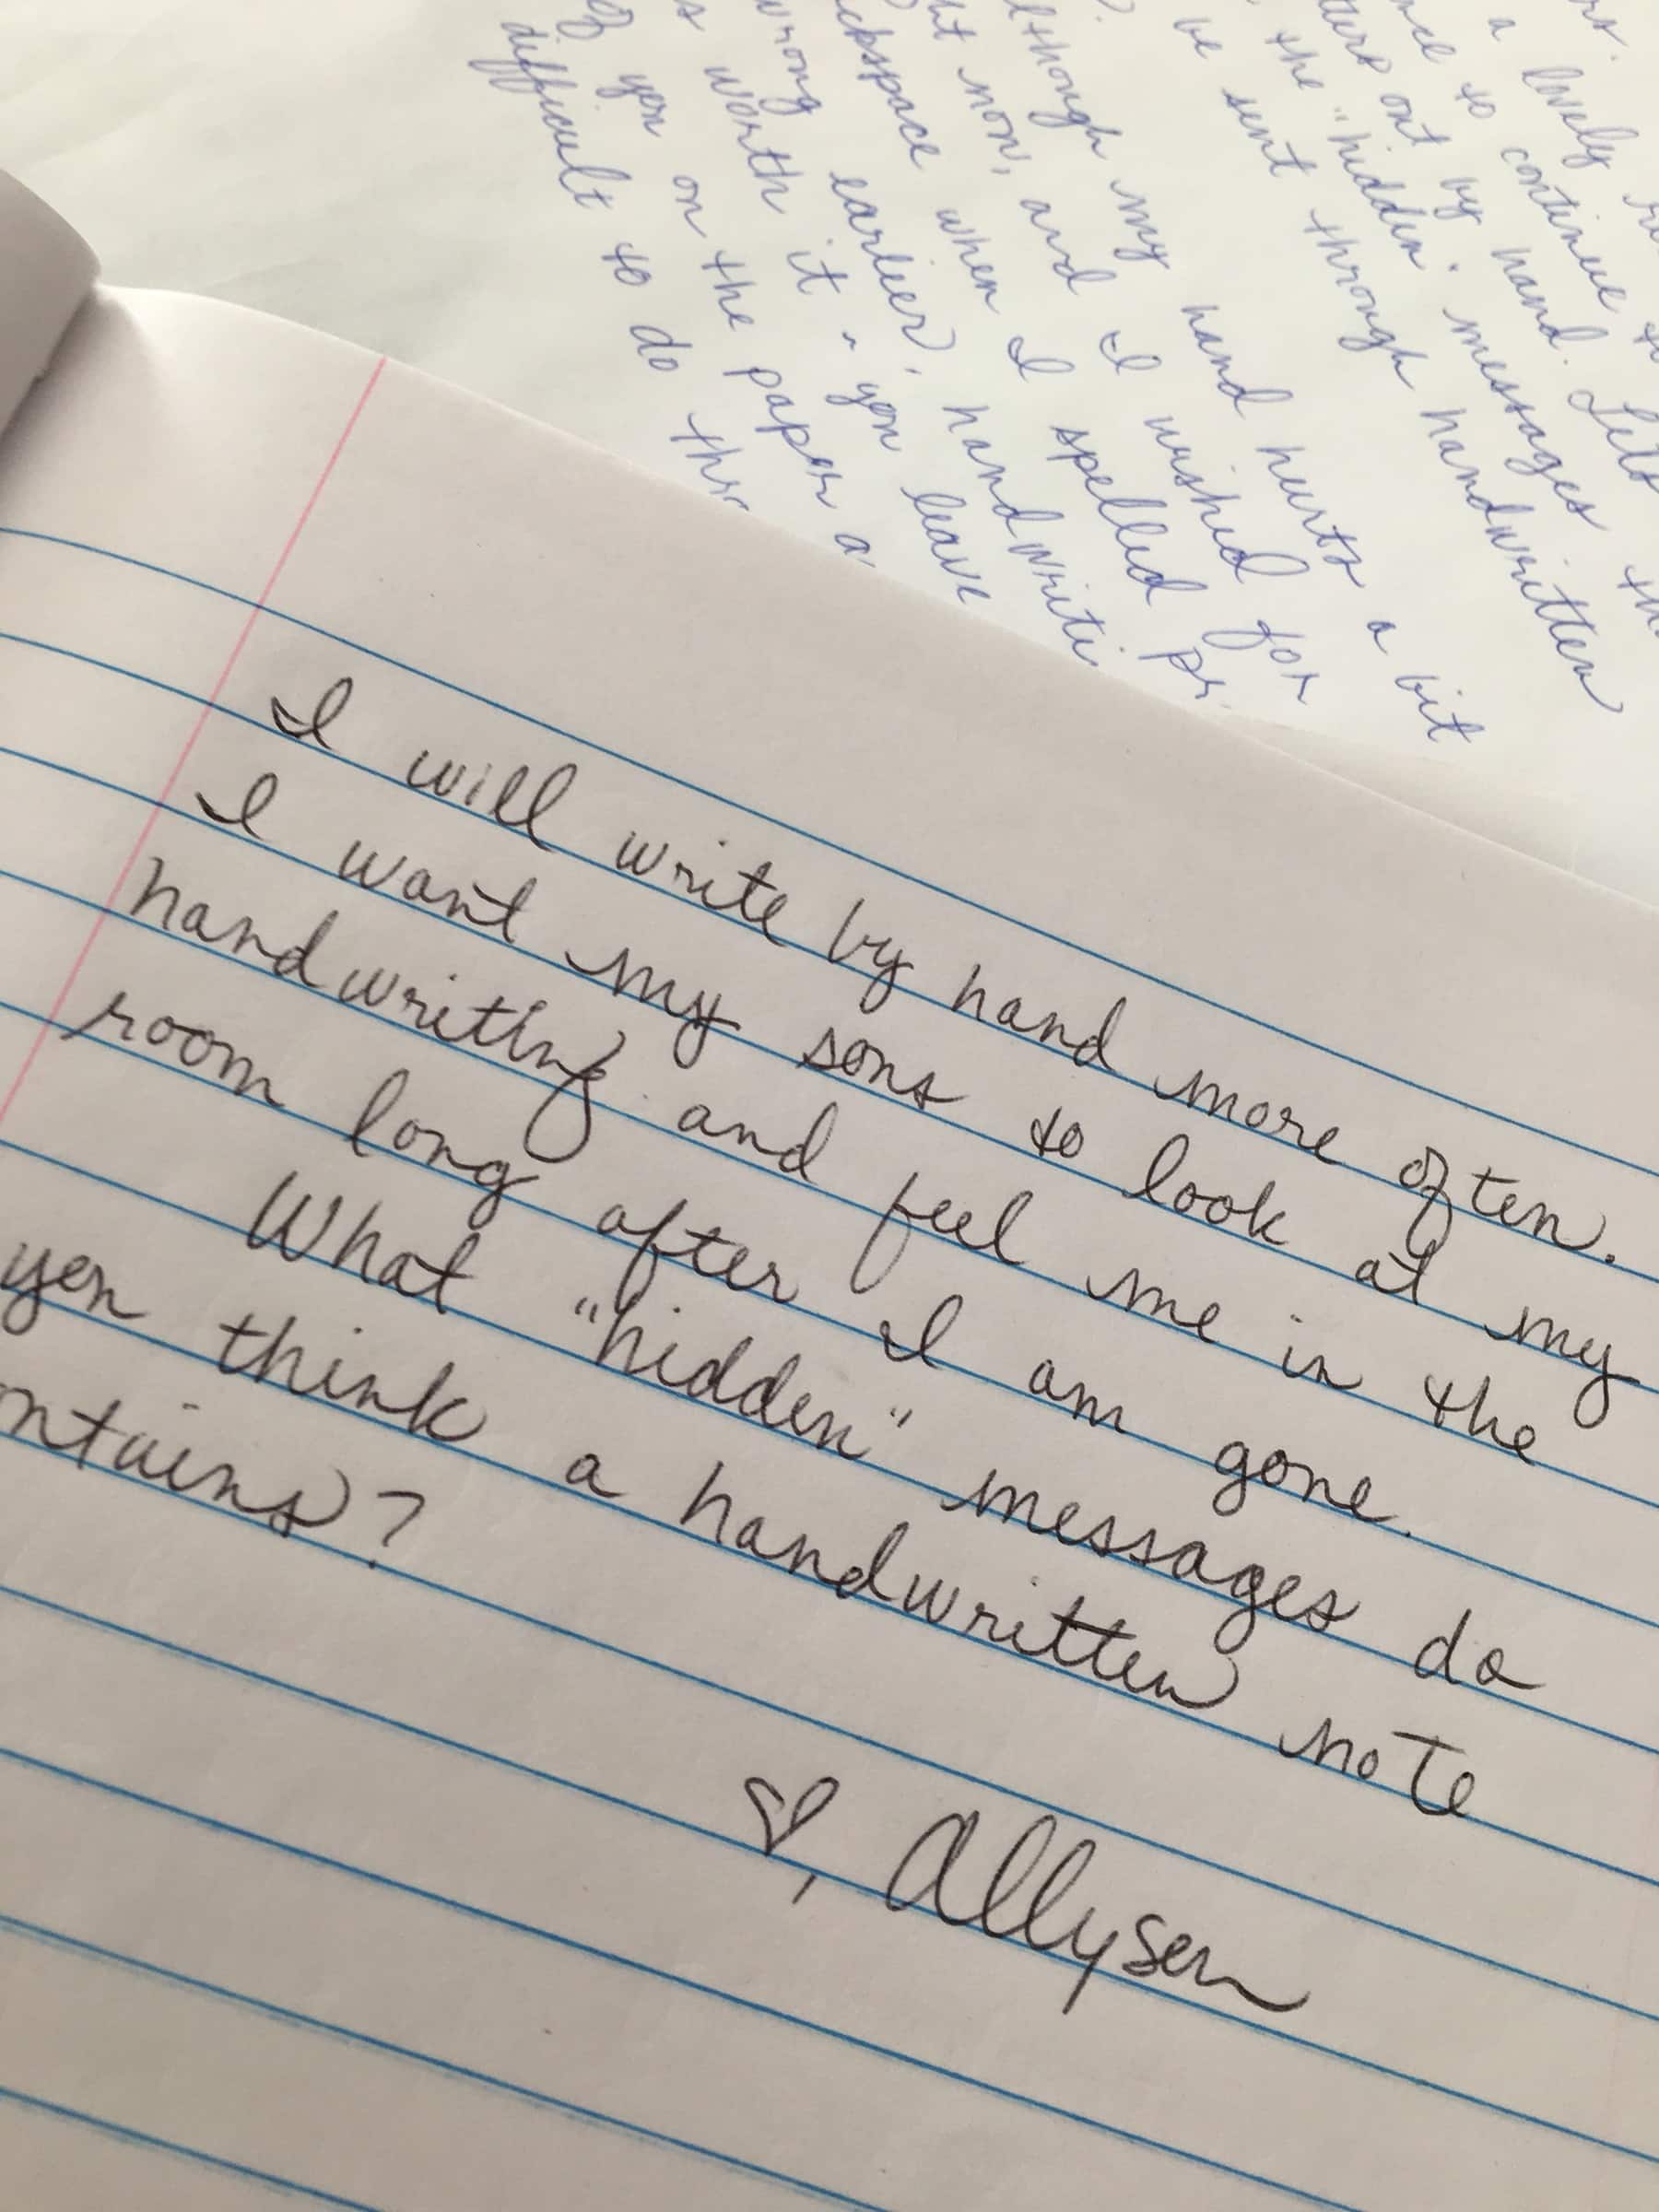 rs.
a lovely
nce to continue to
ters out by hand. Lets
the "hidden" messages
be sent through handwritten
lthough my hand hurts a bit
ht now, and I wished for
ckspace when I spelled
wrong earlier, handwriti
s worth it. you leave
of you on the paper a
difficult to do thr
I will write by hand more often.
I want my sons to look at my
handwriting and feel me in the
room long after I am gone.
What "hidden" messages do
you think a handwritten note
ontains?
♡, Allyson